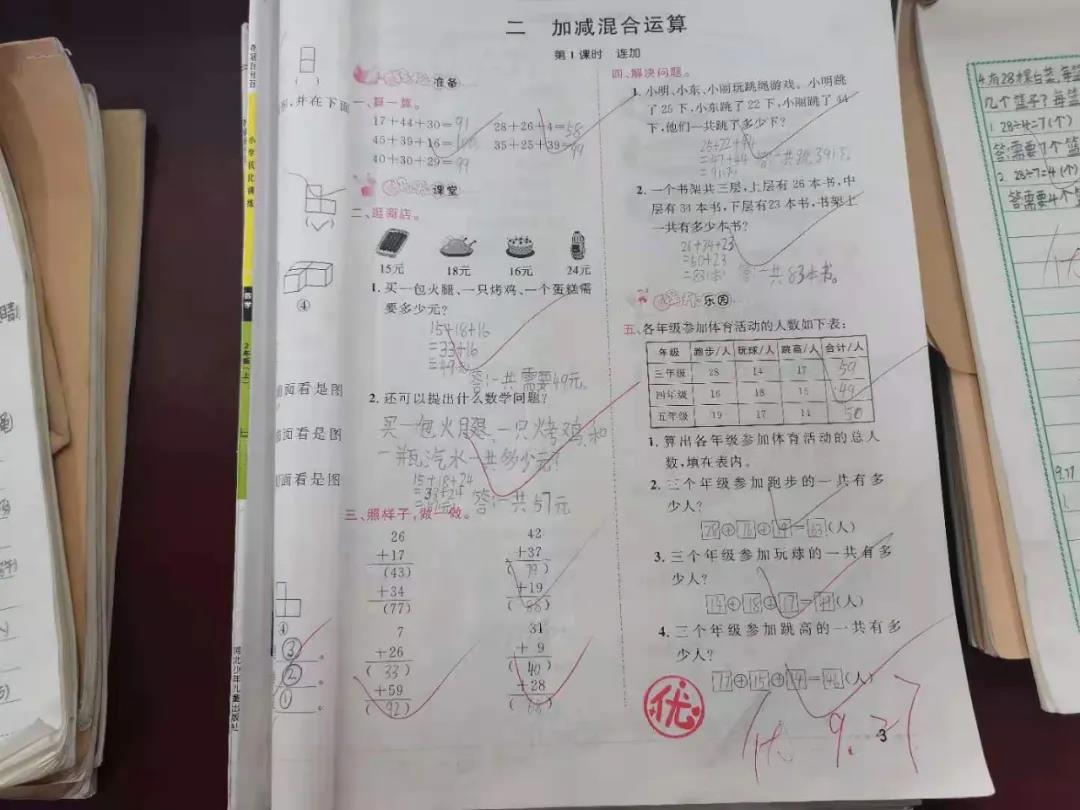 二 加减混合运算
第1课时 连加
准备
一、算一算。
17+44+30=91
28+26+4=58
45+39+16=100
35+25+39=99
40+30+29=99
课堂
二、逛商店。
15元 18元 16元 24元
1. 买一包火腿、一只烤鸡、一个蛋糕需
要多少元?
15+18+16
=33+16
=49
答:一共需要49元。
2. 还可以提出什么数学问题?
买一包火腿、一只烤鸡和
一瓶汽水一共多少元?
15+18+24
=33+24
答:一共57元
三、照样子,做一做。
26
+17
(43)
+34
(77)
42
+37
(79)
+19
7
+26
(33)
+59
(92)
31
+ 9
(40)
+28
(68)
四、解决问题。
1. 小明、小东、小丽玩跳绳游戏。小明跳
了25下,小东跳了22下,小丽跳了44
下,他们一共跳了多少下?
25+22+44
=47+44
2. 一个书架共三层,上层有26本书,中
层有34本书,下层有23本书,书架上
一共有多少本书?
26+34+23
=60+23
=83
答:一共83本书。
乐园
五、各年级参加体育活动的人数如下表:
年级 跑步/人 玩球/人 跳高/人 合计/人
三年级 28 14 17 59
四年级 16 18 15 49
五年级 19 17 14 50
1. 算出各年级参加体育活动的总人
数,填在表内。
2. 三个年级参加跑步的一共有多
少人?
=63(人)
3. 三个年级参加玩球的一共有多
少人?
14+18+17=49(人)
4. 三个年级参加跳高的一共有多
少人?
17+15+14=46(人)
优
优 9.27
3
并在下面
④
面看是图
面看是图
面看是图
④
③
②
①
2年级(上)
河北少年儿童出版社
4.有28棵白菜,每篮
几个篮子?每篮
1. 28÷4=7(个)
答:需要7个篮
2. 28÷7=4(个)
答需要4个篮
9.17